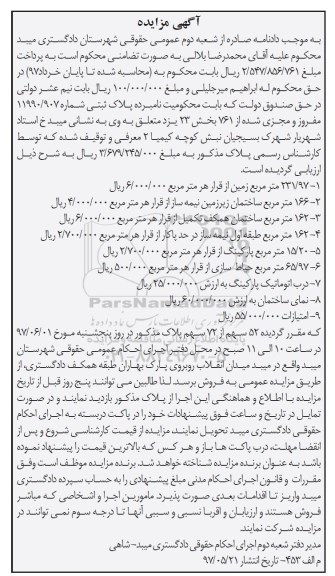 آگهی مزایده
به موجب دادنامه صادره از شعبه دوم عمومی حقوقی شهرستان دادگستری میبد
محکوم علیه آقای محمدرضا بلالی به صورت تضامنی محکوم است به پرداخت
مبلغ ۲/۵۴۷/۸۵۶/۷۶۱ ریال بابت محکوم به (محاسبه شده تا پایان خرداد۹۷) در
حق محکوم له ابراهیم میرجلیلی و مبلغ ۱۰۰/۰۰۰/۰۰۰ ریال بابت نیم عشر دولتی
در حق صندوق دولت که بابت محکومیت نامبرده پلاک ثبتی شماره ۱۱۹۹۰/۹۰۷
مفروز و مجزی شده از ۷۶۱ بخش ۲۳ یزد متعلق به وی به نشانی میبد خ استاد
شهریار شهرک بسیجیان نبش کوچه کیمیا ۲ معرفی و توقیف شده که توسط
کارشناس رسمی پلاک مذکور به مبلغ ۳/۶۷۹/۲۴۵/۰۰۰ ریال به شرح ذیل
ارزیابی گردیده است.
۱- ۲۳۱/۹۷ متر مربع زمین از قرار هر متر مربع ۶/۰۰۰/۰۰۰ ریال
۲- ۱۶۶ متر مربع ساختمان زیرزمین نیمه ساز از قرار هر متر مربع ۴/۰۰۰/۰۰۰ ریال
۳- ۱۶۲ متر مربع ساختمان همکف تکمیل از قرار هر متر مربع ۶/۰۰۰/۰۰۰ ریال
۴- ۱۶۲ متر مربع طبقه اول نیمه ساز در حد پاکار از قرار هر متر مربع ۲/۷۰۰/۰۰۰ ریال
۵- ۱۵/۲۰ متر مربع پارکینگ از قرار هر متر مربع ۲/۷۰۰/۰۰۰ ریال
۶- ۶۵/۹۷ متر مربع حیاط سازی از قرار هر متر مربع ۵۰۰/۰۰۰ ریال
۷- درب اتوماتیک پارکینگ به ارزش ۲۵/۰۰۰/۰۰۰ ریال
۸- نمای ساختمان به ارزش ۶۰/۰۰۰/۰۰۰ ریال
۹- امتیازات ۵۵/۰۰۰/۰۰۰ ریال
که مقرر گردیده ۵۲ سهم از ۷۲ سهم پلاک مذکور در روز پنجشنبه مورخ ۹۷/۰۶/۰۱
در ساعت ۱۰ الی ۱۱ صبح در محل دفتر اجرای احکام عمومی حقوقی شهرستان
میبد واقع در میبد میدان انقلاب روبروی پارک بهاران طبقه همکف دادگستری، از
طریق مزایده عمومی به فروش برسد لذا طالبین می توانند پنج روز قبل از تاریخ
مزایده با اطلاع و هماهنگی این اجرا از پلاک مذکور بازدید نمایند و در صورت
تمایل در تاریخ و ساعت فوق پیشنهادات خود را در پاکت دربسته به اجرای احکام
حقوقی دادگستری میبد تحویل نمایند، مزایده از قیمت کارشناسی شروع و پس از
انقضا مهلت، درب پاکت ها باز و هر کس که بالاترین قیمت را پیشنهاد نموده
باشد به عنوان برنده مزایده شناخته خواهد شد. برنده مزایده موظف است وفق
مقررات و قانون اجرای احکام مدنی مبلغ پیشنهادی را به حساب سپرده دادگستری
میبد واریز تا اقدامات بعدی صورت پذیرد مامورین اجرا و اشخاصی که مباشر
فروش هستند و ارزیابان و اقربا نسبی و سببی آنها تا درجه سوم نمی توانند در
مزایده شرکت نمایند.
مدیر دفتر شعبه دوم اجرای احکام حقوقی دادگستری میبد-شاهی
م الف ۴۵۳- تاریخ انتشار ۹۷/۰۵/۲۱